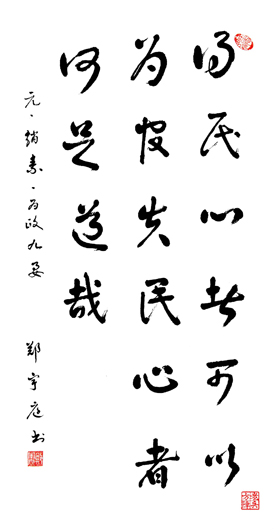 得民心者可以
为官失民心者
何足道哉
元·赵素·为政九要
郑宇庭书